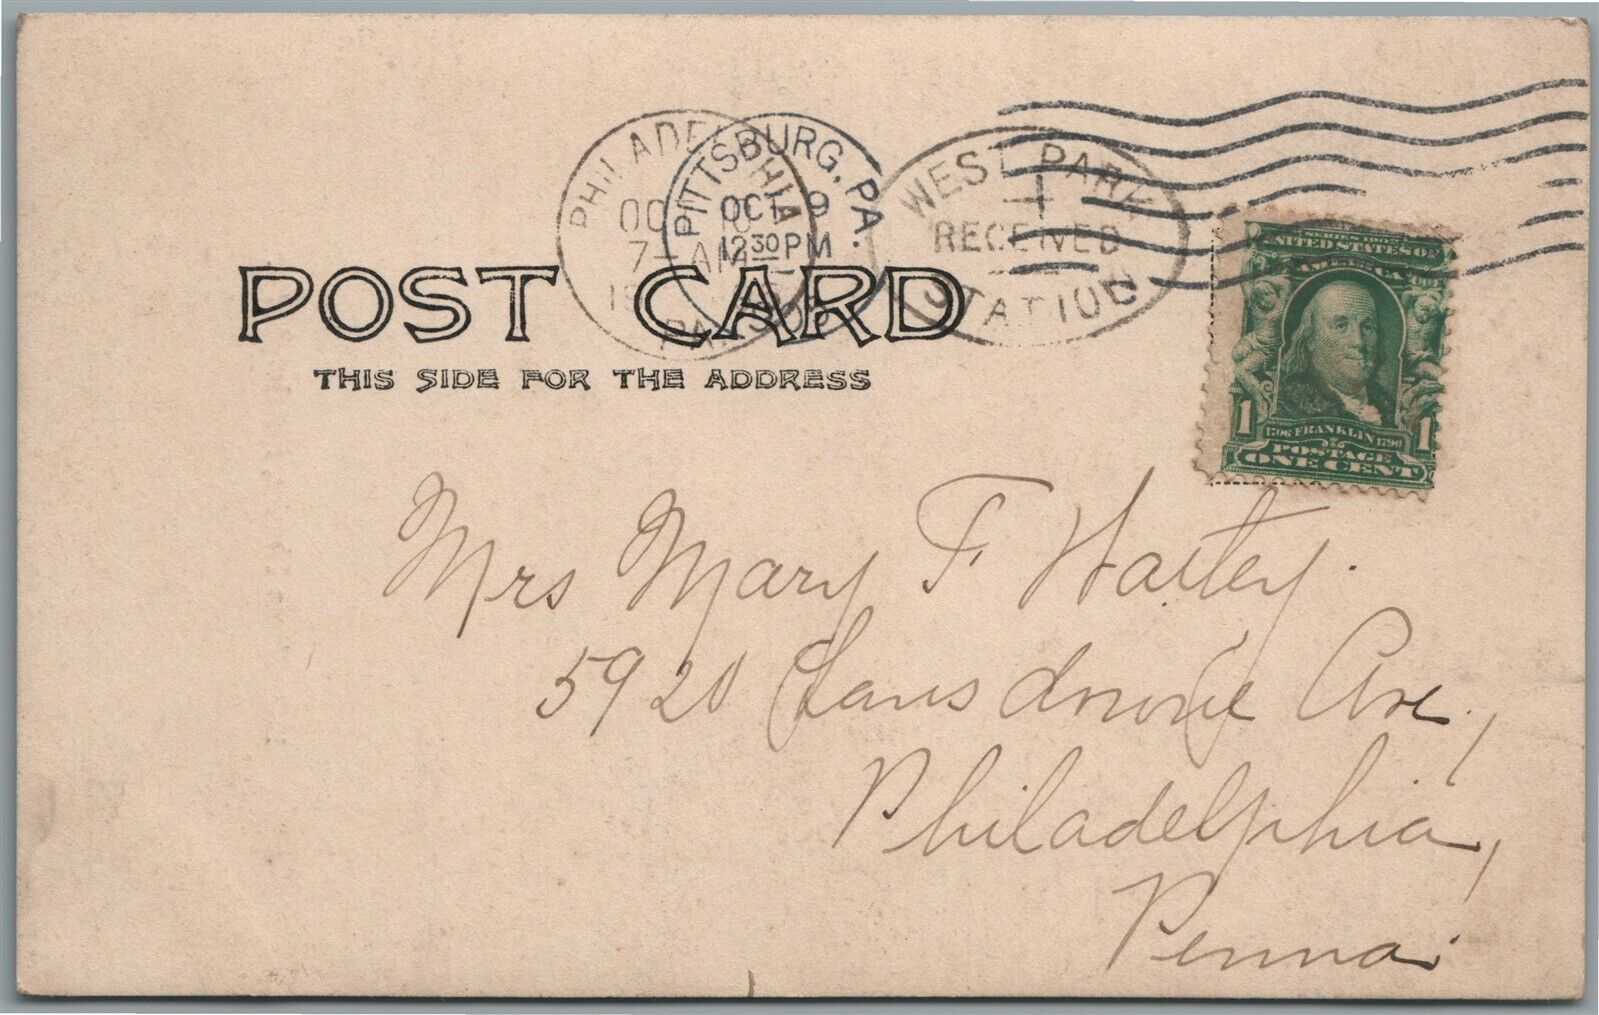 PHILADELPHIA
OCT 10
7-AM
PA.
PITTSBURG, PA.
OCT 9
12 30 PM
WEST PARK
RECEIVED
STATION
POST CARD
THIS SIDE FOR THE ADDRESS
SERIES 1902
UNITED STATES OF
AMERICA
1 1
1706 FRANKLIN 1790
POSTAGE
ONE CENT
Mrs Mary F Hartey.
5920 Lansdowne Ave.,
Philadelphia,
Penna.